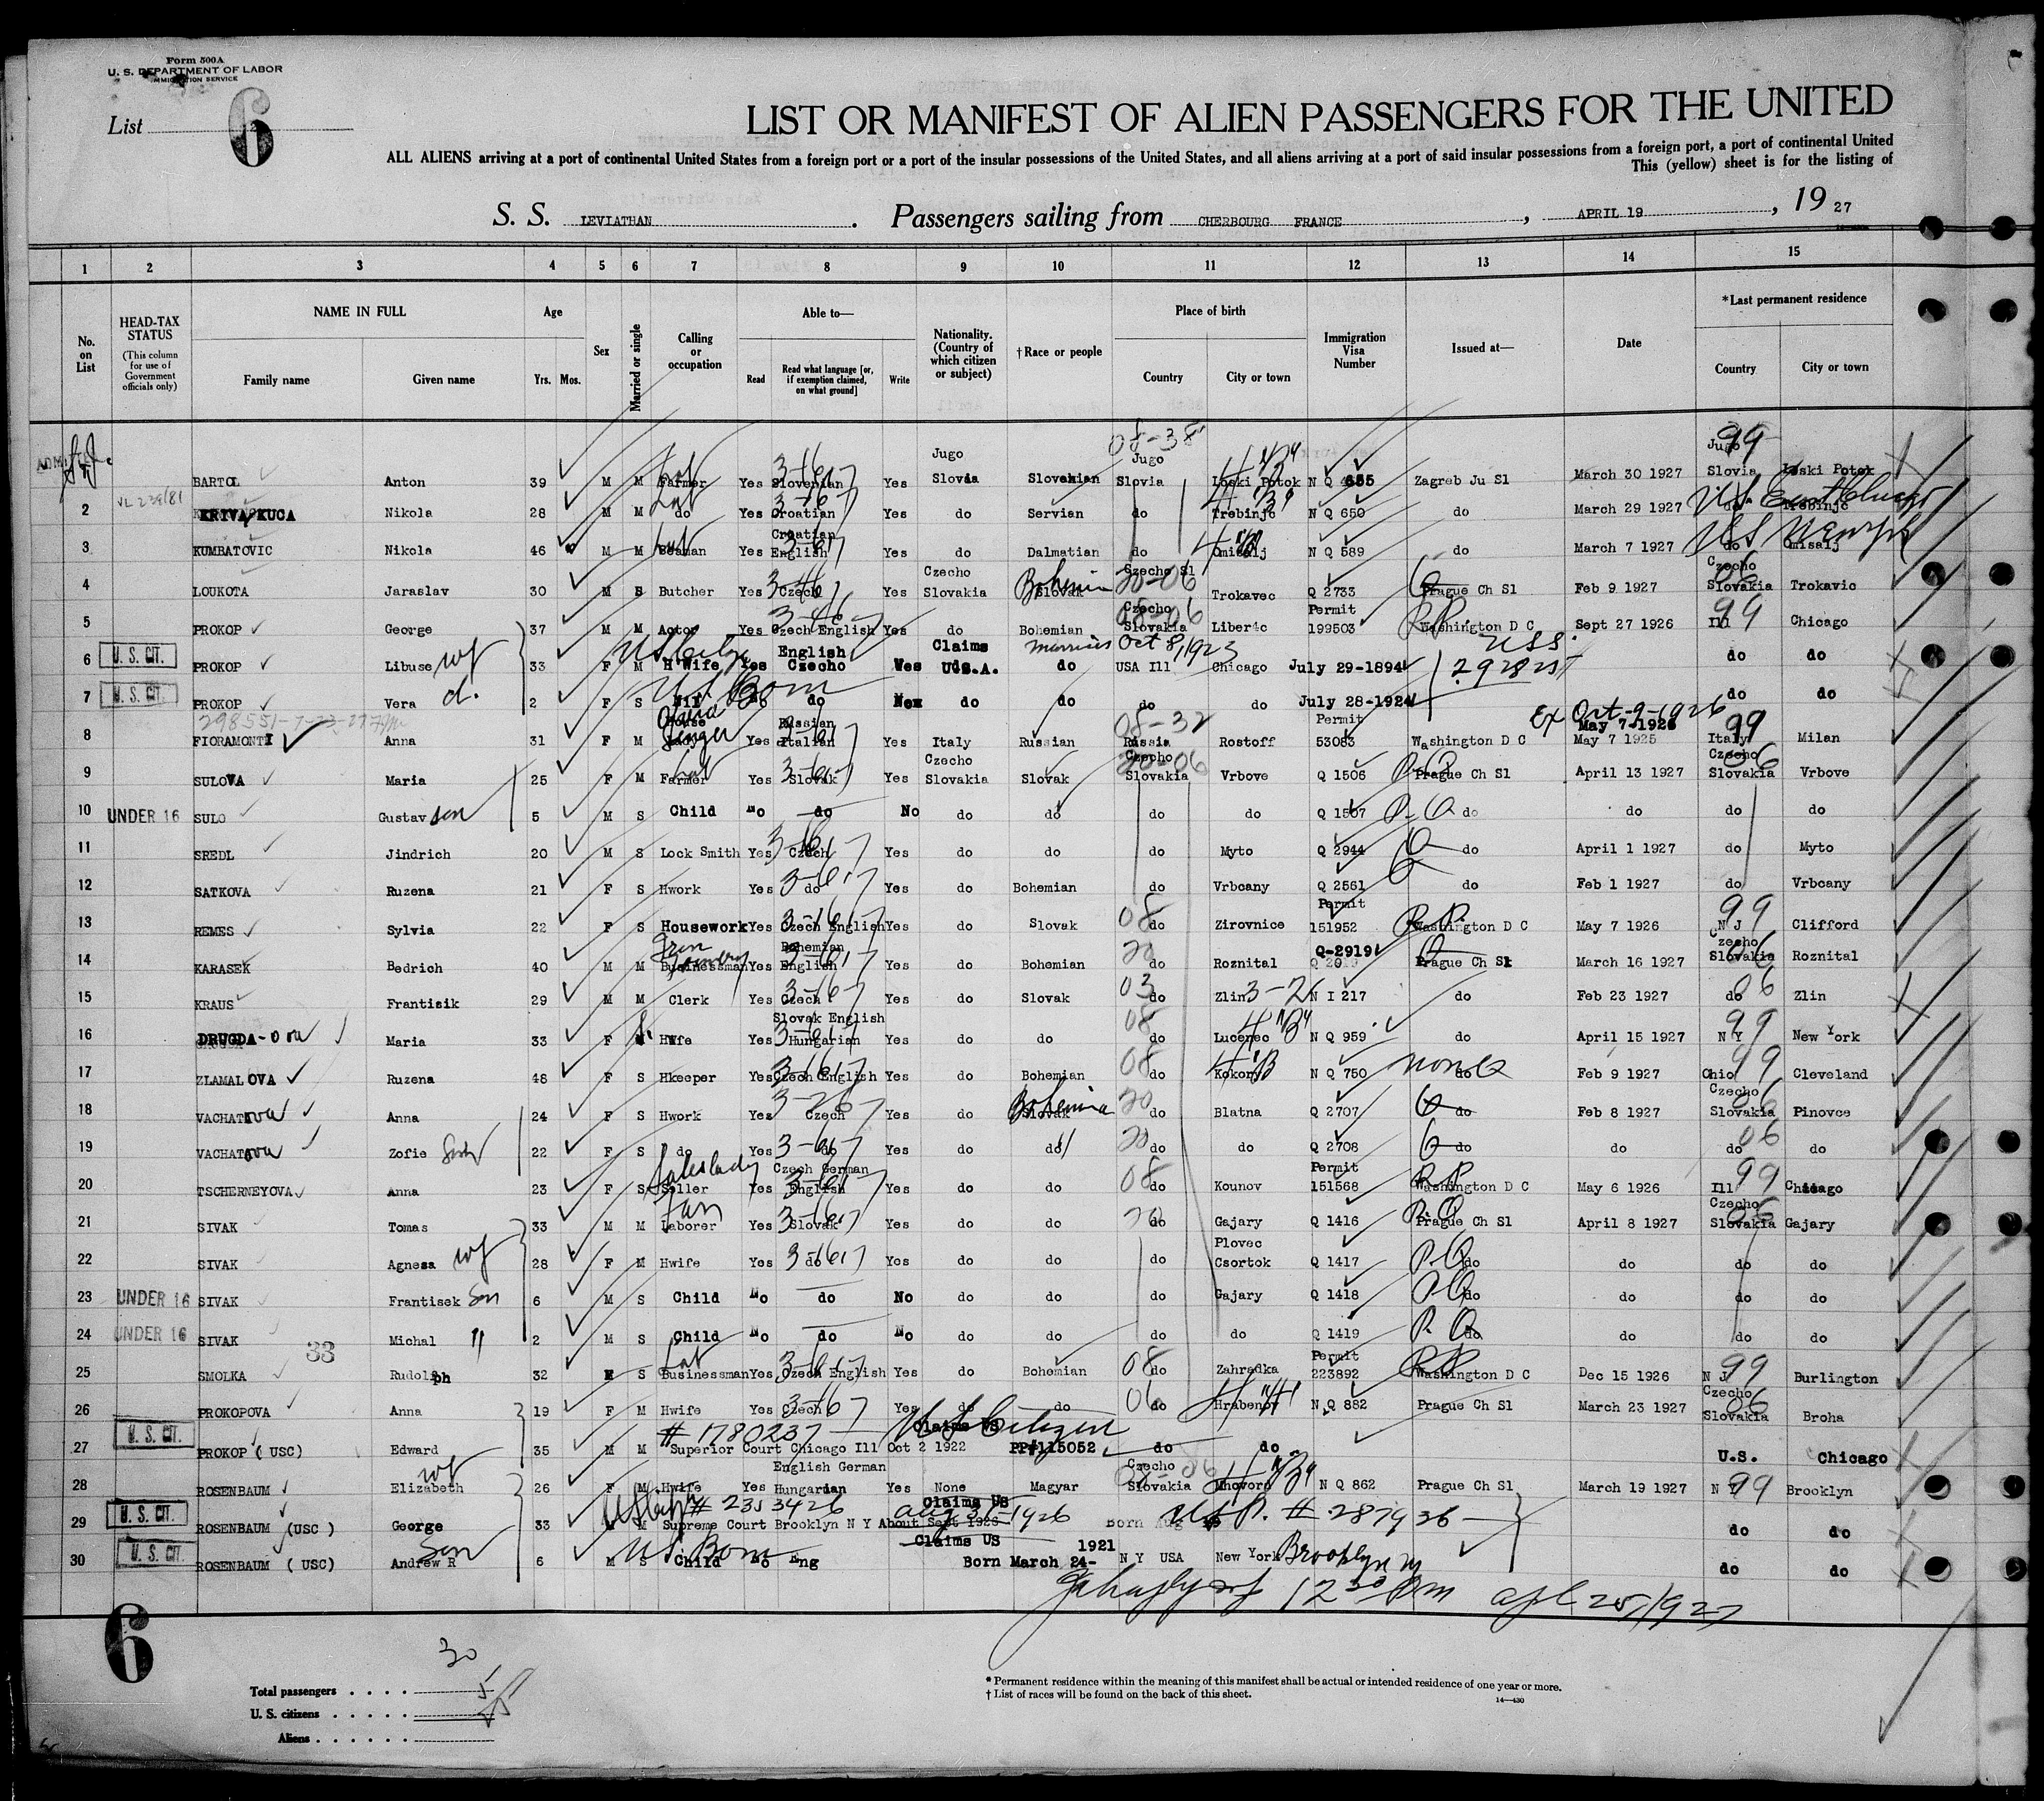 Form 500A
U. S. DEPARTMENT OF LABOR
IMMIGRATION SERVICE
List 6
LIST OR MANIFEST OF ALIEN PASSENGERS FOR THE UNITED
ALL ALIENS arriving at a port of continental United States from a foreign port or a port of the insular possessions of the United States, and all aliens arriving at a port of said insular possessions from a foreign port, a port of continental United
This (yellow) sheet is for the listing of
S. S. LEVIATHAN . Passengers sailing from CHERBOURG FRANCE , APRIL 19 , 19 27
1 2 3 4 5 6 7 8 9 10 11 12 13 14 15
No. on List
HEAD-TAX STATUS (This column for use of Government officials only)
NAME IN FULL Family name Given name
Age Yrs. Mos.
Sex
Married or single
Calling or occupation
Able to— Read Read what language [or, if exemption claimed, on what ground] Write
Nationality. (Country of which citizen or subject)
†Race or people
Place of birth Country City or town
Immigration Visa Number
Issued at—
Date
*Last permanent residence Country City or town
BARTOL Anton 39 M M Farmer Yes Slovenian Yes Jugo Slovia Slovenian Jugo Slovia Loski Potok N Q 655 Zagreb Ju Sl March 30 1927 Jugo Slovia Loski Potok
2 VL 239/81 KRIVA KUCA Nikola 28 M M do Yes Croatian Yes do Servian do Trebinje N Q 650 do March 29 1927 do Trebinje
3 KUMBATOVIC Nikola 46 M M Seaman Yes Croatian English Yes do Dalmatian do Omisalj N Q 589 do March 7 1927 do Omisalj
4 LOUKOTA Jaraslav 30 M S Butcher Yes Czech Yes Czecho Slovakia Bohemian Slovak Czecho Sl 20-06 Trokavec Q 2733 Prague Ch Sl Feb 9 1927 Czecho Slovakia Trokavic
5 PROKOP George 37 M M Actor Yes Czech English Yes do Bohemian Czecho Slovakia Liberec Permit 199503 Washington D C Sept 27 1926 Ill 99 Chicago
6 U. S. CIT. PROKOP Libuse wf 33 F M H Wife Yes English Czecho Yes Claims U.S.A. do married Oct 8, 1923 USA Ill Chicago July 29-1894 do do
7 U. S. CIT. PROKOP Vera d. 2 F S Nil No do do do do do July 28-1924 do do
U S Born
8 FIORAMONTI Anna 31 F M House Opera Singer Yes Russian Italian Yes Italy Russian 08-32 Russia Rostoff Permit 53083 Washington D C Ex Oct-9-1926 May 7-1926 May 7 1925 Italy 99 Milan
9 SULOVA Maria 25 F M Farmer Yes Slovak Yes Czecho Slovakia Slovak Czecho Slovakia 20-06 Vrbove Q 1506 Prague Ch Sl April 13 1927 Czecho Slovakia Vrbove
10 UNDER 16 SULO Gustav son 5 M S Child No do No do do do do Q 1507 do do do do
11 SREDL Jindrich 20 M S Lock Smith Yes Czech Yes do do do Myto Q 2944 do April 1 1927 do Myto
12 SATKOVA Ruzena 21 F S Hwork Yes do Yes do Bohemian do Vrbcany Q 2561 do Feb 1 1927 do Vrbcany
13 REMES Sylvia 22 F S Housework Yes Czech English Yes do Slovak 08 do Zirovnice Permit 151952 Washington D C May 7 1926 N J 99 Clifford
14 KARASEK Bedrich 40 M M Businessman Yes Bohemian English Yes do Bohemian 20 do Roznital Q-2919 Prague Ch Sl March 16 1927 Czecho Slovakia 06 Roznital
15 KRAUS Frantisik 29 M M Clerk Yes Czech Yes do Slovak 03 do Zlin 3-2 N I 217 do Feb 23 1927 do 06 Zlin
16 DRUGDA-ova Maria 33 F Hwfe Yes Slovak English Hungarian Yes do do 08 do Lucenec N Q 959 do April 15 1927 N Y 99 New York
17 ZLAMALOVA Ruzena 48 F S Hkeeper Yes Czech English Yes do Bohemian 08 do Kokory N Q 750 do Feb 9 1927 Ohio 99 Cleveland
18 VACHATova Anna 24 F S Hwork Yes Czech Yes do Bohemia Slovak 20 do Blatna Q 2707 do Feb 8 1927 Czecho Slovakia Pinovce
19 VACHATova Zofie Sister 22 F S do Yes do Yes do do 20 do do Q 2708 do do do 06 do
20 TSCHERNEYOVA Anna 23 F S Seller Saleslady Yes Czech German English Yes do do 08 do Kounov Permit 151568 Washington D C May 6 1926 Ill 99 Chicago
21 SIVAK Tomas 33 M M Laborer Yes Slovak Yes do do 20 do Gajary Q 1416 Prague Ch Sl April 8 1927 Czecho Slovakia Gajary
22 SIVAK Agnesa wf 28 F M Hwife Yes do Yes do do do Plovec Csortok Q 1417 do do do do
23 UNDER 16 SIVAK Frantisek Son 6 M S Child No do No do do do Gajary Q 1418 do do do do
24 UNDER 16 SIVAK Michal " 2 M S Child No do No do do do do Q 1419 do do do do
33
25 SMOLKA Rudolph 32 M S Businessman Yes Czech English Yes do Bohemian 08 do Zahradka Permit 223892 Washington D C Dec 15 1926 N J 99 Burlington
26 PROKOPOVA Anna 19 F M Hwife Yes Czech Yes do do 06 do Hrabenov N Q 882 Prague Ch Sl March 23 1927 Czecho Slovakia 06 Broha
# 1780237 Claims US U S Citizen
27 U. S. CIT. PROKOP (USC) Edward 35 M M Superior Court Chicago Ill Oct 2 1922 PP#115052 do do U.S. Chicago
28 ROSENBAUM Elizabeth wf 26 F M Hwife Yes English German Hungarian Yes None Magyar Czecho Slovakia N Q 862 Prague Ch Sl March 19 1927 N Y 99 Brooklyn
# 2353426 Claims US Aug 31-1926 # 287936
29 U. S. CIT. ROSENBAUM (USC) George 33 M M Supreme Court Brooklyn N Y About Sept 1926 Born Aug do do
30 U. S. CIT. ROSENBAUM (USC) Andrew R Son 6 M S Child No Eng Claims US Born March 24-1921 N Y USA New York Brooklyn NY do do
US Born
12 30 pm Apl 25, 1927
6
Total passengers . . . . 30
U. S. citizens . . . . . 5
Aliens . . . . . . 25
* Permanent residence within the meaning of this manifest shall be actual or intended residence of one year or more.
† List of races will be found on the back of this sheet.
14—430